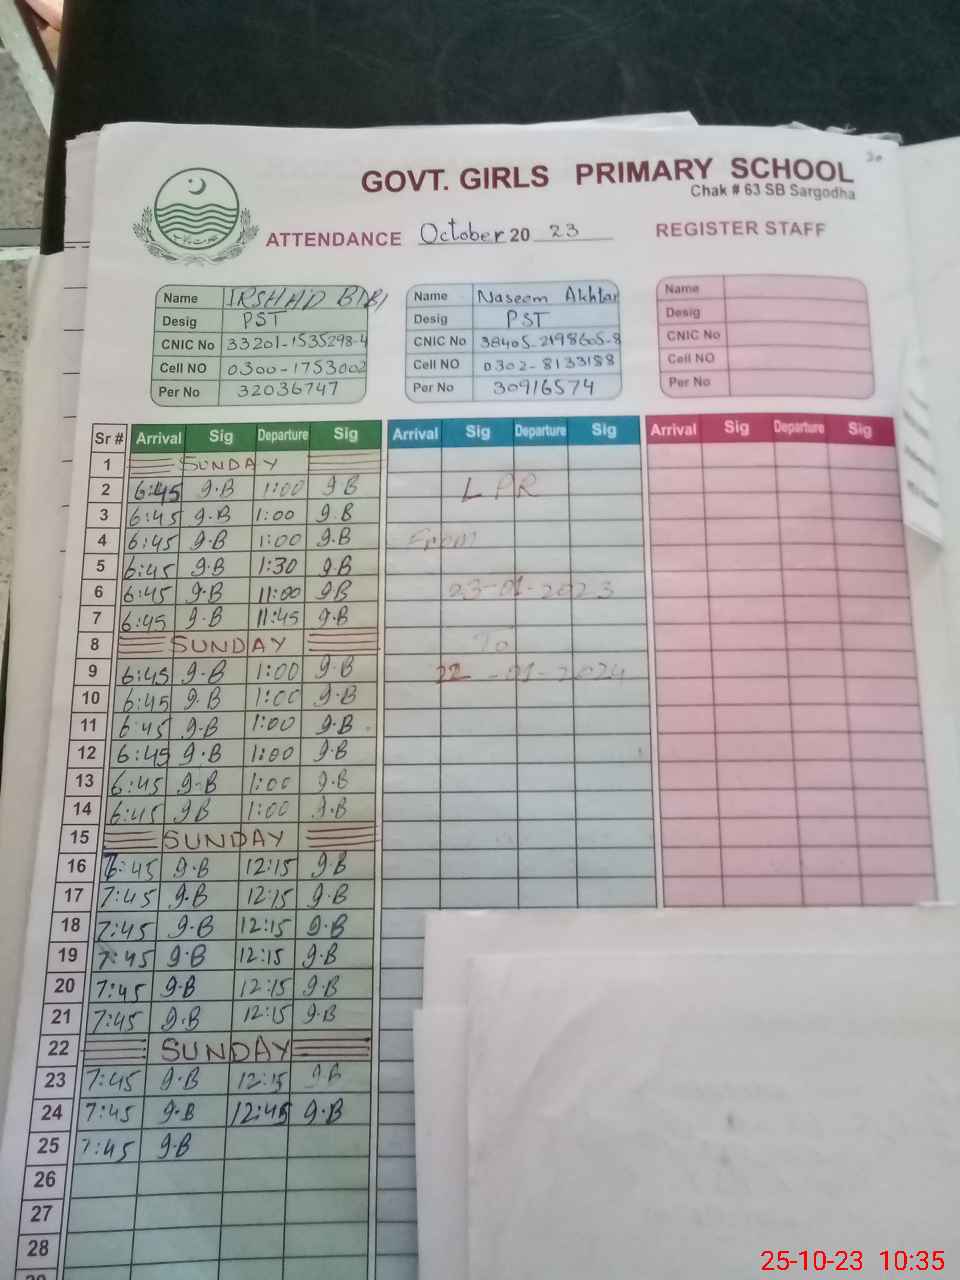 30
GOVT. GIRLS PRIMARY SCHOOL
Chak # 63 SB Sargodha
ATTENDANCE October 20 23 REGISTER STAFF
Name IRSHAD BIBI Name Naseem Akhtar Name
Desig PST Desig PST Desig
CNIC No 33201-1535298-4 CNIC No 38405-2198605-8 CNIC No
Cell NO 0300-1753002 Cell NO 0302-8133188 Cell NO
Per No 32036747 Per No 30916574 Per No
Sr # Arrival Sig Departure Sig Arrival Sig Departure Sig Arrival Sig Departure Sig
1 SUNDAY
2 6:45 I.B 1:00 I.B LPR
3 6:45 I.B 1:00 I.B
4 6:45 I.B 1:00 I.B From
5 6:45 I.B 1:30 I.B
6 6:45 I.B 11:00 I.B 23-01-2023
7 6:45 I.B 11:45 I.B
8 SUNDAY To
9 6:45 I.B 1:00 I.B 22-01-2024
10 6:45 I.B 1:00 I.B
11 6:45 I.B 1:00 I.B
12 6:45 I.B 1:00 I.B
13 6:45 I.B 1:00 I.B
14 6:45 I.B 1:00 I.B
15 SUNDAY
16 :45 I.B 12:15 I.B
17 7:45 I.B 12:15 I.B
18 7:45 I.B 12:15 I.B
19 7:45 I.B 12:15 I.B
20 7:45 I.B 12:15 I.B
21 7:45 I.B 12:15 I.B
22 SUNDAY
23 7:45 I.B 12:15 I.B
24 7:45 I.B 12:45 I.B
25 7:45 I.B
26
27
28
25-10-23 10:35